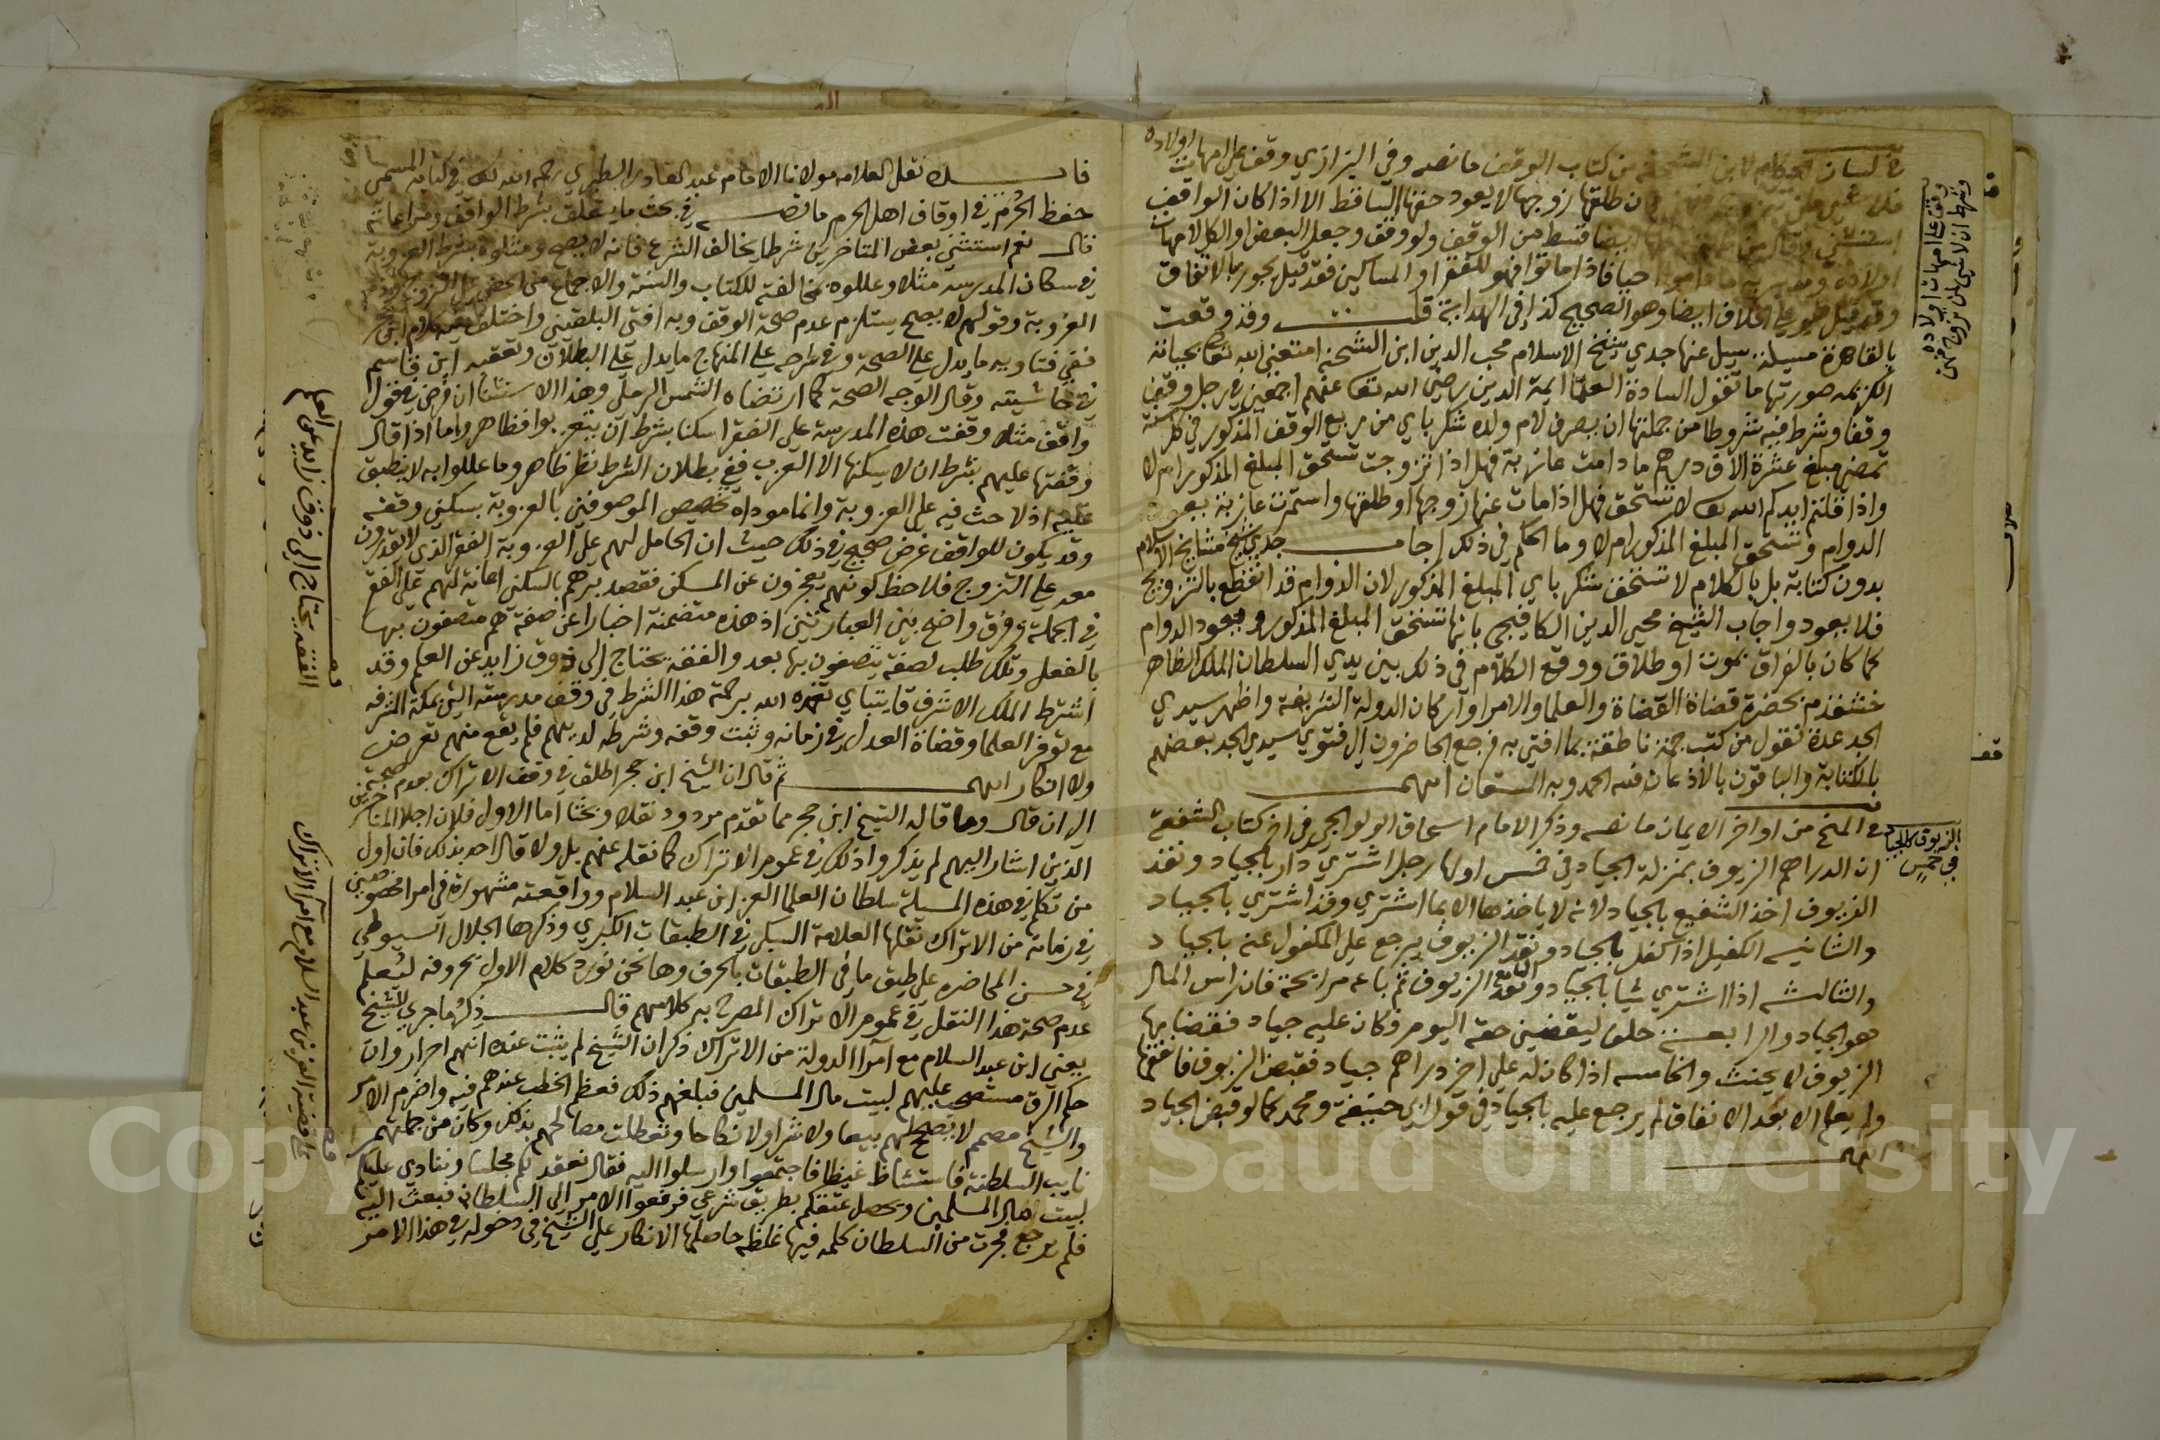 في لسان الحكام لابن الشحنة من كتاب الوقف ما نصه وفي البزازي وقف على امهات اولاده
ن طلقها زوجها لا يعود حقها الساقط الا اذا كان الواقف
استثنى وقال من طلقت ايضا قسط من الوقف ولو وقف وجعل البعض او الكل لامهات
اولاده ما داموا احيا فاذا ماتوا فهو للفقرا والمساكين فقد قيل يجوز بالاتفاق
وقد قيل هو على الخلاف ايضا وهو الصحيح كذا في الهداية قلت وقد وقعت
بالقاهرة مسيلة سيل عنها جدي شيخ الاسلام محب الدين ابن الشحنة امتعني الله تعا بحياته
الكريمه صورتها ما تقول السادة العلما ايمة الدين رضي الله تعا عنهم اجمعين في رجل وقف
وقفا وشرط فيه شروطا من جملتها ان يصرف لام ولده شكر باي من ريع الوقف المذكور في كل سنة
تمضي مبلغ عشرة الاف درهم ما دامت عازبة فهل اذا تزوجت تستحق المبلغ المذكور ام لا
واذا قلتم ايدكم الله تعا لا تستحق فهل اذا مات عنها زوجها او طلقها واستمرت عازبة يعود
الدوام وتستحق المبلغ المذكور ام لا وما الحكم في ذلك اجاب جدي شيخ مشايخ الاسلام
بدون كتابة بل بالكلام لا تستحق شكر باي المبلغ المذكور لان الدوام قد انقطع بالتزويج
فلا يعود واجاب الشيخ محيي الدين الكافيجي بانها تستحق المبلغ المذكور ويعود الدوام
كما كان بالفراق بموت او طلاق ووقع الكلام في ذلك بين يدي السلطان الملك الظاهر
خشقدم بحضرة قضاة القضاة والعلما والامرا واركان الدولة الشريفة واظهر سيدي
الجد عدة نقول من كتب جمة ناطقة بما افتى به فرجع الحاضرون الى فتوى سيدي الجد بعضهم
بالكتابة والباقون بالاذعان فلله الحمد وبه المستعان انتهى
في المنح من اواخر الايمان ما نصه وذكر الامام اسحاق الولوالجي في اخر كتاب الشفعة
ان الدراهم الزيوف بمنزلة الجياد في خمس اولها رجل اشترى دارا بالجياد ونقد
الزيوف اخذ الشفيع بالجياد لانه لا ياخذها الا بما اشترى وقد اشترى بالجياد
والثانيه الكفيل اذا كفل بالجياد ونقد الزيوف يرجع على المكفول عنه بالجياد
والثالثه اذا اشترى شيا بالجياد ونقد البايع الزيوف ثم باعه مرابحة فان راس المال
هو الجياد والرابعة حلف ليقضين حقه اليوم وكان عليه جياد فقضا بها
الزيوف لا يحنث والخامسه اذا كان له على اخر دراهم جياد فقبض الزيوف فانفقها
ولم يعلم الا بعد الانفاق لم يرجع عليه بالجياد في قول ابي حنيفة ومحمد كما لو قبض الجياد
انتهى
وقف على امهات اولاده
وشرط ان لا شي لمن تزوج منهن
الزيوف كالجياد
في خمس
نقل العلامه مولانا الامام عبد القادر الطبري رحمه الله تعا في كتابه المسمى
حفظ الحرم في اوقاف اهل الحرم ما نصه في بحث ما يتعلق بشرط الواقف ومراعاته
قال نعم استثنى بعض المتاخرين شرطا يخالف الشرع فانه لا يصح ومثلوه بشرط العزوبة
في سكان المدرسه مثلا وعللوه بمخالفته للكتاب والسنة والاجماع
العزوبة وقولهم لا يصح يستلزم عدم صحة الوقف وبه افتى البلقيني واختلف فيه كلام ابن
ففي فتاويه ما يدل على الصحة وفي شرحه على المنهاج ما يدل على البطلان وتعقبه ابن قاسم
في حاشيته وقال الوجه الصحة كما ارتضاه الشمس الرملي وهذا الاستثنا ان فرض في قول
واقف مثلا وقفت هذه المدرسة على الفقرا سكنا بشرط ان يتعزبوا فظاهر واما اذا قال
وقفتها عليهم بشرط ان لا يسكنها الا العزب ففي بطلان الشرط نظر ظاهر وما عللوا به لا ينطبق
عليه اذ لا حث فيه على العزوبة وانما موداه تخصيص الموصوفين بالعزوبة بسكنى وقفه
وقد يكون للواقف غرض صحيح في ذلك حيث ان الحامل لهم على العزوبة الفقر الذي لا يقدرون
معه على التزوج فلاحظ كونهم يعجزون عن المسكن فقصد برهم بالسكنى اعانة لهم على الفقر
في الجملة وفرق واضح بين العبارتين اذ هذه متضمنة اخبارا عن صفة هم متصفون بها
بالفعل وتلك طلب لصفة يتصفون بها بعد والفقه يحتاج الى ذوق زايد عن العلم وقد
اشترط الملك الاشرف قايتباي تغمده الله برحمته هذا الشرط في وقف مدرسته التي بمكة المشرفه
مع توفر العلما وقضاة العدل في زمانه وثبت وقفه وشرطه لديهم فلم يقع منهم تعرض
ولا انكار انتهى ثم قال ان الشيخ ابن حجر اطلق في وقف الاتراك بعدم صحته
الى ان قال وما قاله الشيخ ابن حجر مما تقدم مردود نقلا وبحثا اما الاول فلان اجلا المتاخرين
الذين اشار اليهم لم يذكروا ذلك في عموم الاتراك كما نقله عنهم بل ولا قال احد بذلك فان اول
من تكلم في هذه المسلة سلطان العلما العز ابن عبد السلام وواقعته مشهورة في امرا مخصوصين
في زمانه من الاتراك نقلها العلامة السبكي في الطبقات الكبرى وذكرها الجلال السيوطي
في حسن المحاضره على طبق ما في الطبقات بالحرف وها نحن نورد كلام الاول بحروفه ليعلم
عدم صحة هذا النقل في عموم الاتراك المصرح به كلامهم قال ذكر ما جرى للشيخ
يعني ابن عبد السلام مع امرا الدولة من الاتراك ذكر ان الشيخ لم يثبت عنده انهم احرار وان
حكم الرق مستصحب عليهم لبيت مال المسلمين فبلغهم ذلك فعظم الخطب عندهم فيه واضرم الامر
والشيخ مصمم لا يصحح لهم بيعا ولا شرا ولا نكاحا وتعطلت مصالحهم بذلك وكان من جملتهم
نايب السلطنة فاستشاط غيظا فاجتمعوا وارسلوا اليه فقال نعقد لكم مجلسا وننادي عليكم
لبيت مال المسلمين ويحصل عتقكم بطريق شرعي فرفعوا الامر الى السلطان فبعث اليه
فلم يرجع فجرت من السلطان كلمه فيها غلظه حاصلها الانكار على الشيخ في دخوله في هذا الامر
الفقه يحتاج الى ذوق زايد عن العلم
قصة العز بن عبد السلام مع امرا الاتراك
Copyright © King Saud University